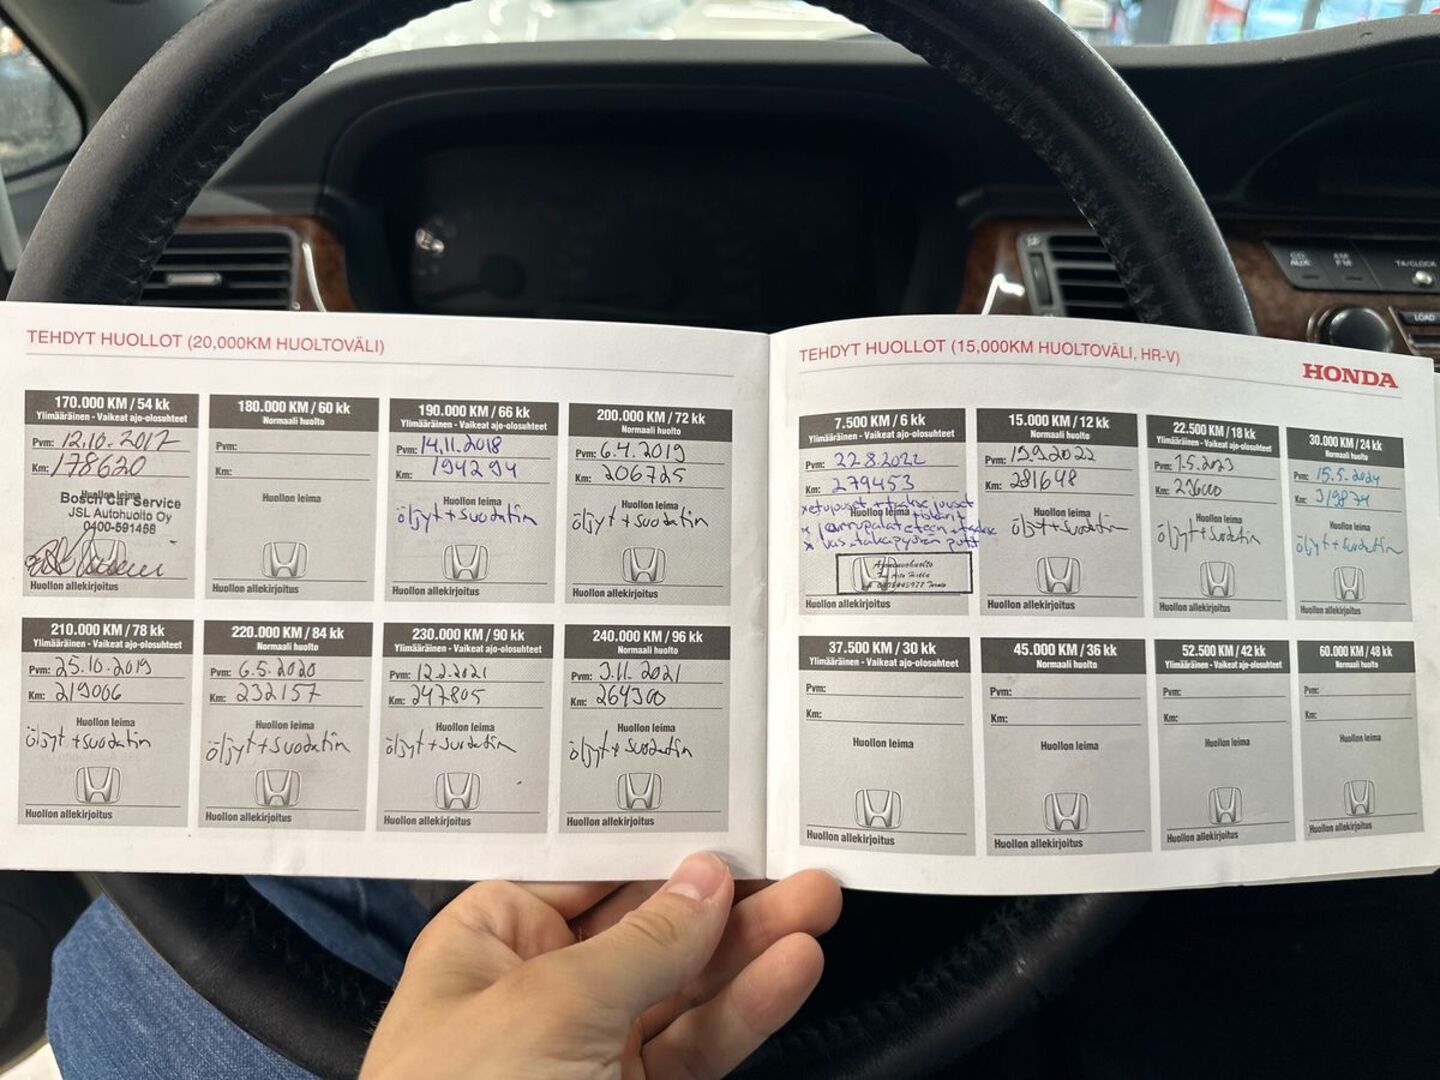 TEHDYT HUOLLOT (20,000KM HUOLTOVÄLI)
170.000 KM / 54 kk
Ylimääräinen - Vaikeat ajo-olosuhteet
Pvm: 12.10.2017
Km: 178620
Huollon leima
Bosch Car Service
JSL Autohuolto Oy
0400-591468
Huollon allekirjoitus
180.000 KM / 60 kk
Normaali huolto
Pvm:
Km:
Huollon leima
Huollon allekirjoitus
190.000 KM / 66 kk
Ylimääräinen - Vaikeat ajo-olosuhteet
Pvm: 14.11.2018
Km: 194294
Huollon leima
öljyt + suodatin
Huollon allekirjoitus
200.000 KM / 72 kk
Normaali huolto
Pvm: 6.4.2019
Km: 206725
Huollon leima
öljyt + suodatin
Huollon allekirjoitus
210.000 KM / 78 kk
Ylimääräinen - Vaikeat ajo-olosuhteet
Pvm: 25.10.2019
Km: 219006
Huollon leima
öljyt + suodatin
Huollon allekirjoitus
220.000 KM / 84 kk
Normaali huolto
Pvm: 6.5.2020
Km: 232157
Huollon leima
öljyt + suodatin
Huollon allekirjoitus
230.000 KM / 90 kk
Ylimääräinen - Vaikeat ajo-olosuhteet
Pvm: 12.2.2021
Km: 247805
Huollon leima
öljyt + suodatin
Huollon allekirjoitus
240.000 KM / 96 kk
Normaali huolto
Pvm: 3.11.2021
Km: 264300
Huollon leima
öljyt + suodatin
Huollon allekirjoitus
TEHDYT HUOLLOT (15,000KM HUOLTOVÄLI, HR-V)
HONDA
7.500 KM / 6 kk
Ylimääräinen - Vaikeat ajo-olosuhteet
Pvm: 22.8.2022
Km: 279453
x etujouset + takajouset
Huollon leima
x jarrupalat eteen + taakse
x vas. takapyörän
Huollon allekirjoitus
15.000 KM / 12 kk
Normaali huolto
Pvm: 15.9.2022
Km: 281648
Huollon leima
öljyt + suodatin
Huollon allekirjoitus
22.500 KM / 18 kk
Ylimääräinen - Vaikeat ajo-olosuhteet
Pvm: 1.5.2023
Km:
Huollon leima
öljyt + suodatin
Huollon allekirjoitus
30.000 KM / 24 kk
Normaali huolto
Pvm: 15.5.2024
Km: 319874
Huollon leima
öljyt + suodatin
Huollon allekirjoitus
37.500 KM / 30 kk
Ylimääräinen - Vaikeat ajo-olosuhteet
Pvm:
Km:
Huollon leima
Huollon allekirjoitus
45.000 KM / 36 kk
Normaali huolto
Pvm:
Km:
Huollon leima
Huollon allekirjoitus
52.500 KM / 42 kk
Ylimääräinen - Vaikeat ajo-olosuhteet
Pvm:
Km:
Huollon leima
Huollon allekirjoitus
60.000 KM / 48 kk
Normaali huolto
Pvm:
Km:
Huollon leima
Huollon allekirjoitus
CD
AUX
AM
FM
TA/CLOCK
LOAD